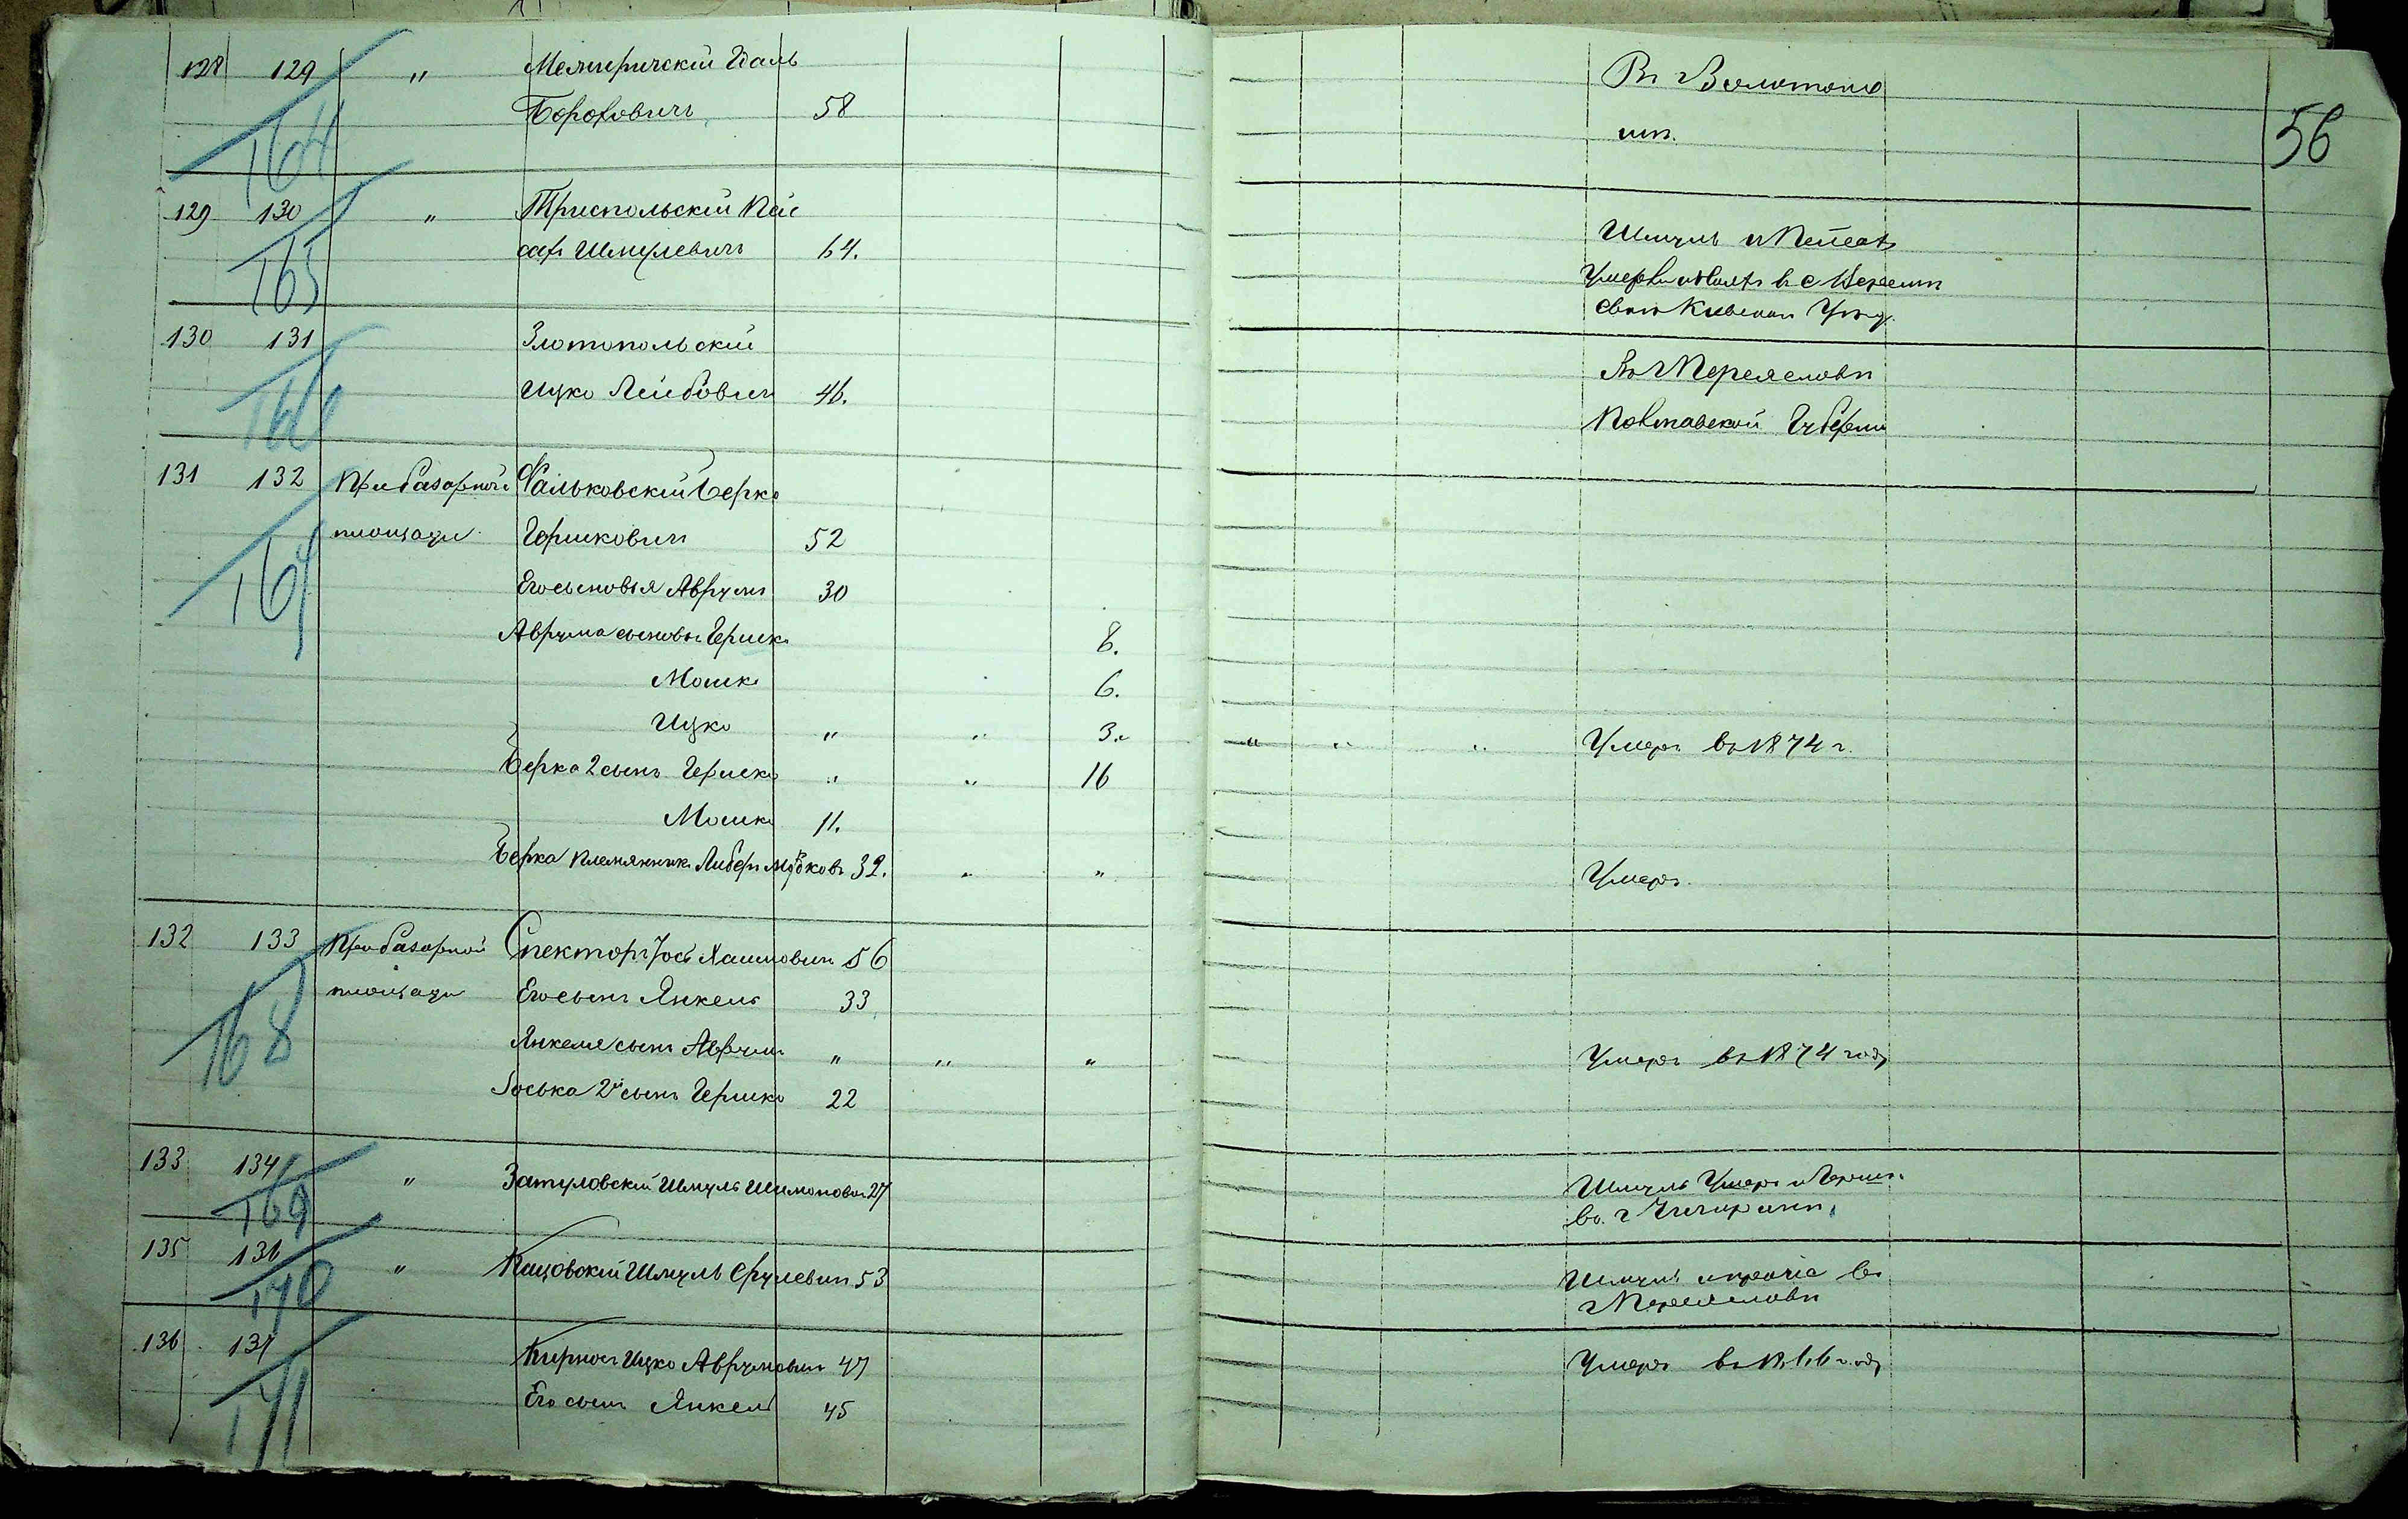 128 129 " Межиричский Идаль
Борохович 58
164
Въ г Золотоно
шѣ.
56
129 130 " Триспольский Пей
сах Шмулевичъ 64.
165
Шмуль и Пейсахъ
Умерли въ с
Киевской
130 131 Злотопольский
Ицко Лейбович 46.
166
Въ г Переяславѣ
Полтавской Губерніи
131 132 При базарной Фальковский Берко
площади Гершкович 52
167
Его сыновья Аврумъ 30
Аврума сыновья Гершко 8.
Мошко 6.
Ицко " " 3. " " " Умеръ въ 1874 г.
Берка 2 сынъ Гершко " " 16
Мошко 11.
Берка племянникъ Либеръ Мошковъ 32. " " Умеръ.
132 133 При базарной Спекторъ Іось Хаимович 56
168
площади Его сынъ Янкель 33
Янкеля сынъ Аврумъ " " " Умеръ въ 1874 году
Іоська 2й сынъ Гершко 22
133 134 " Затуловский Шмуль Шимонович 27
169
Шмуль Умеръ и Гершко
въ г Чигиринѣ
135 136 " Кацовский Шмуль Срулевич 53
170
Шмуль и прочіе въ
г Переяславѣ
136 137 Кирносъ Ицко Аврумович 47 Умеръ въ году
Его сынъ Янкель 45
171